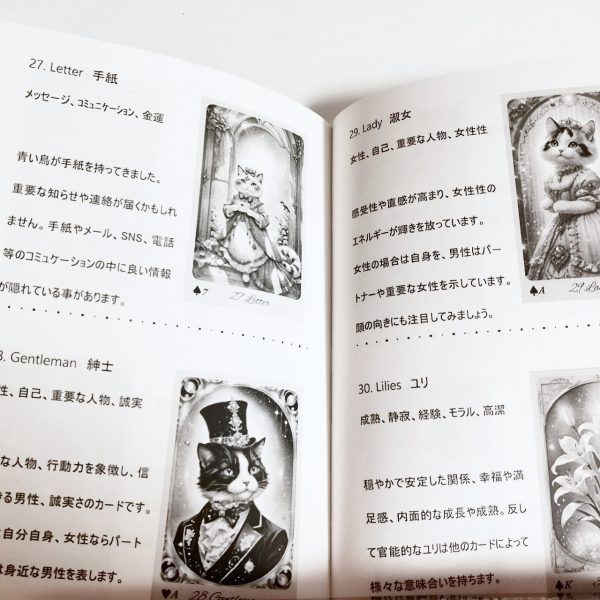 27. Letter 手紙
メッセージ、コミュニケーション、金運
青い鳥が手紙を持ってきました。
重要な知らせや連絡が届くかもしれ
ません。手紙やメール、SNS、電話
等のコミュケーションの中に良い情報
が隠れている事があります。
♠7 27 Letter
8. Gentleman 紳士
性、自己、重要な人物、誠実
な人物、行動力を象徴し、信
きる男性、誠実さのカードです。
自分自身、女性ならパート
は身近な男性を表します。
♥A 28 Gentlem
29. Lady 淑女
女性、自己、重要な人物、女性性
感受性や直感が高まり、女性性の
エネルギーが輝きを放っています。
女性の場合は自身を、男性はパー
トナーや重要な女性を示しています。
顔の向きにも注目してみましょう。
♠A 29 La
30. Lilies ユリ
成熟、静寂、経験、モラル、高潔
穏やかで安定した関係、幸福や満
足感、内面的な成長や成熟。反し
て官能的なユリは他のカードによって
様々な意味合いを持ちます。
♠K 3